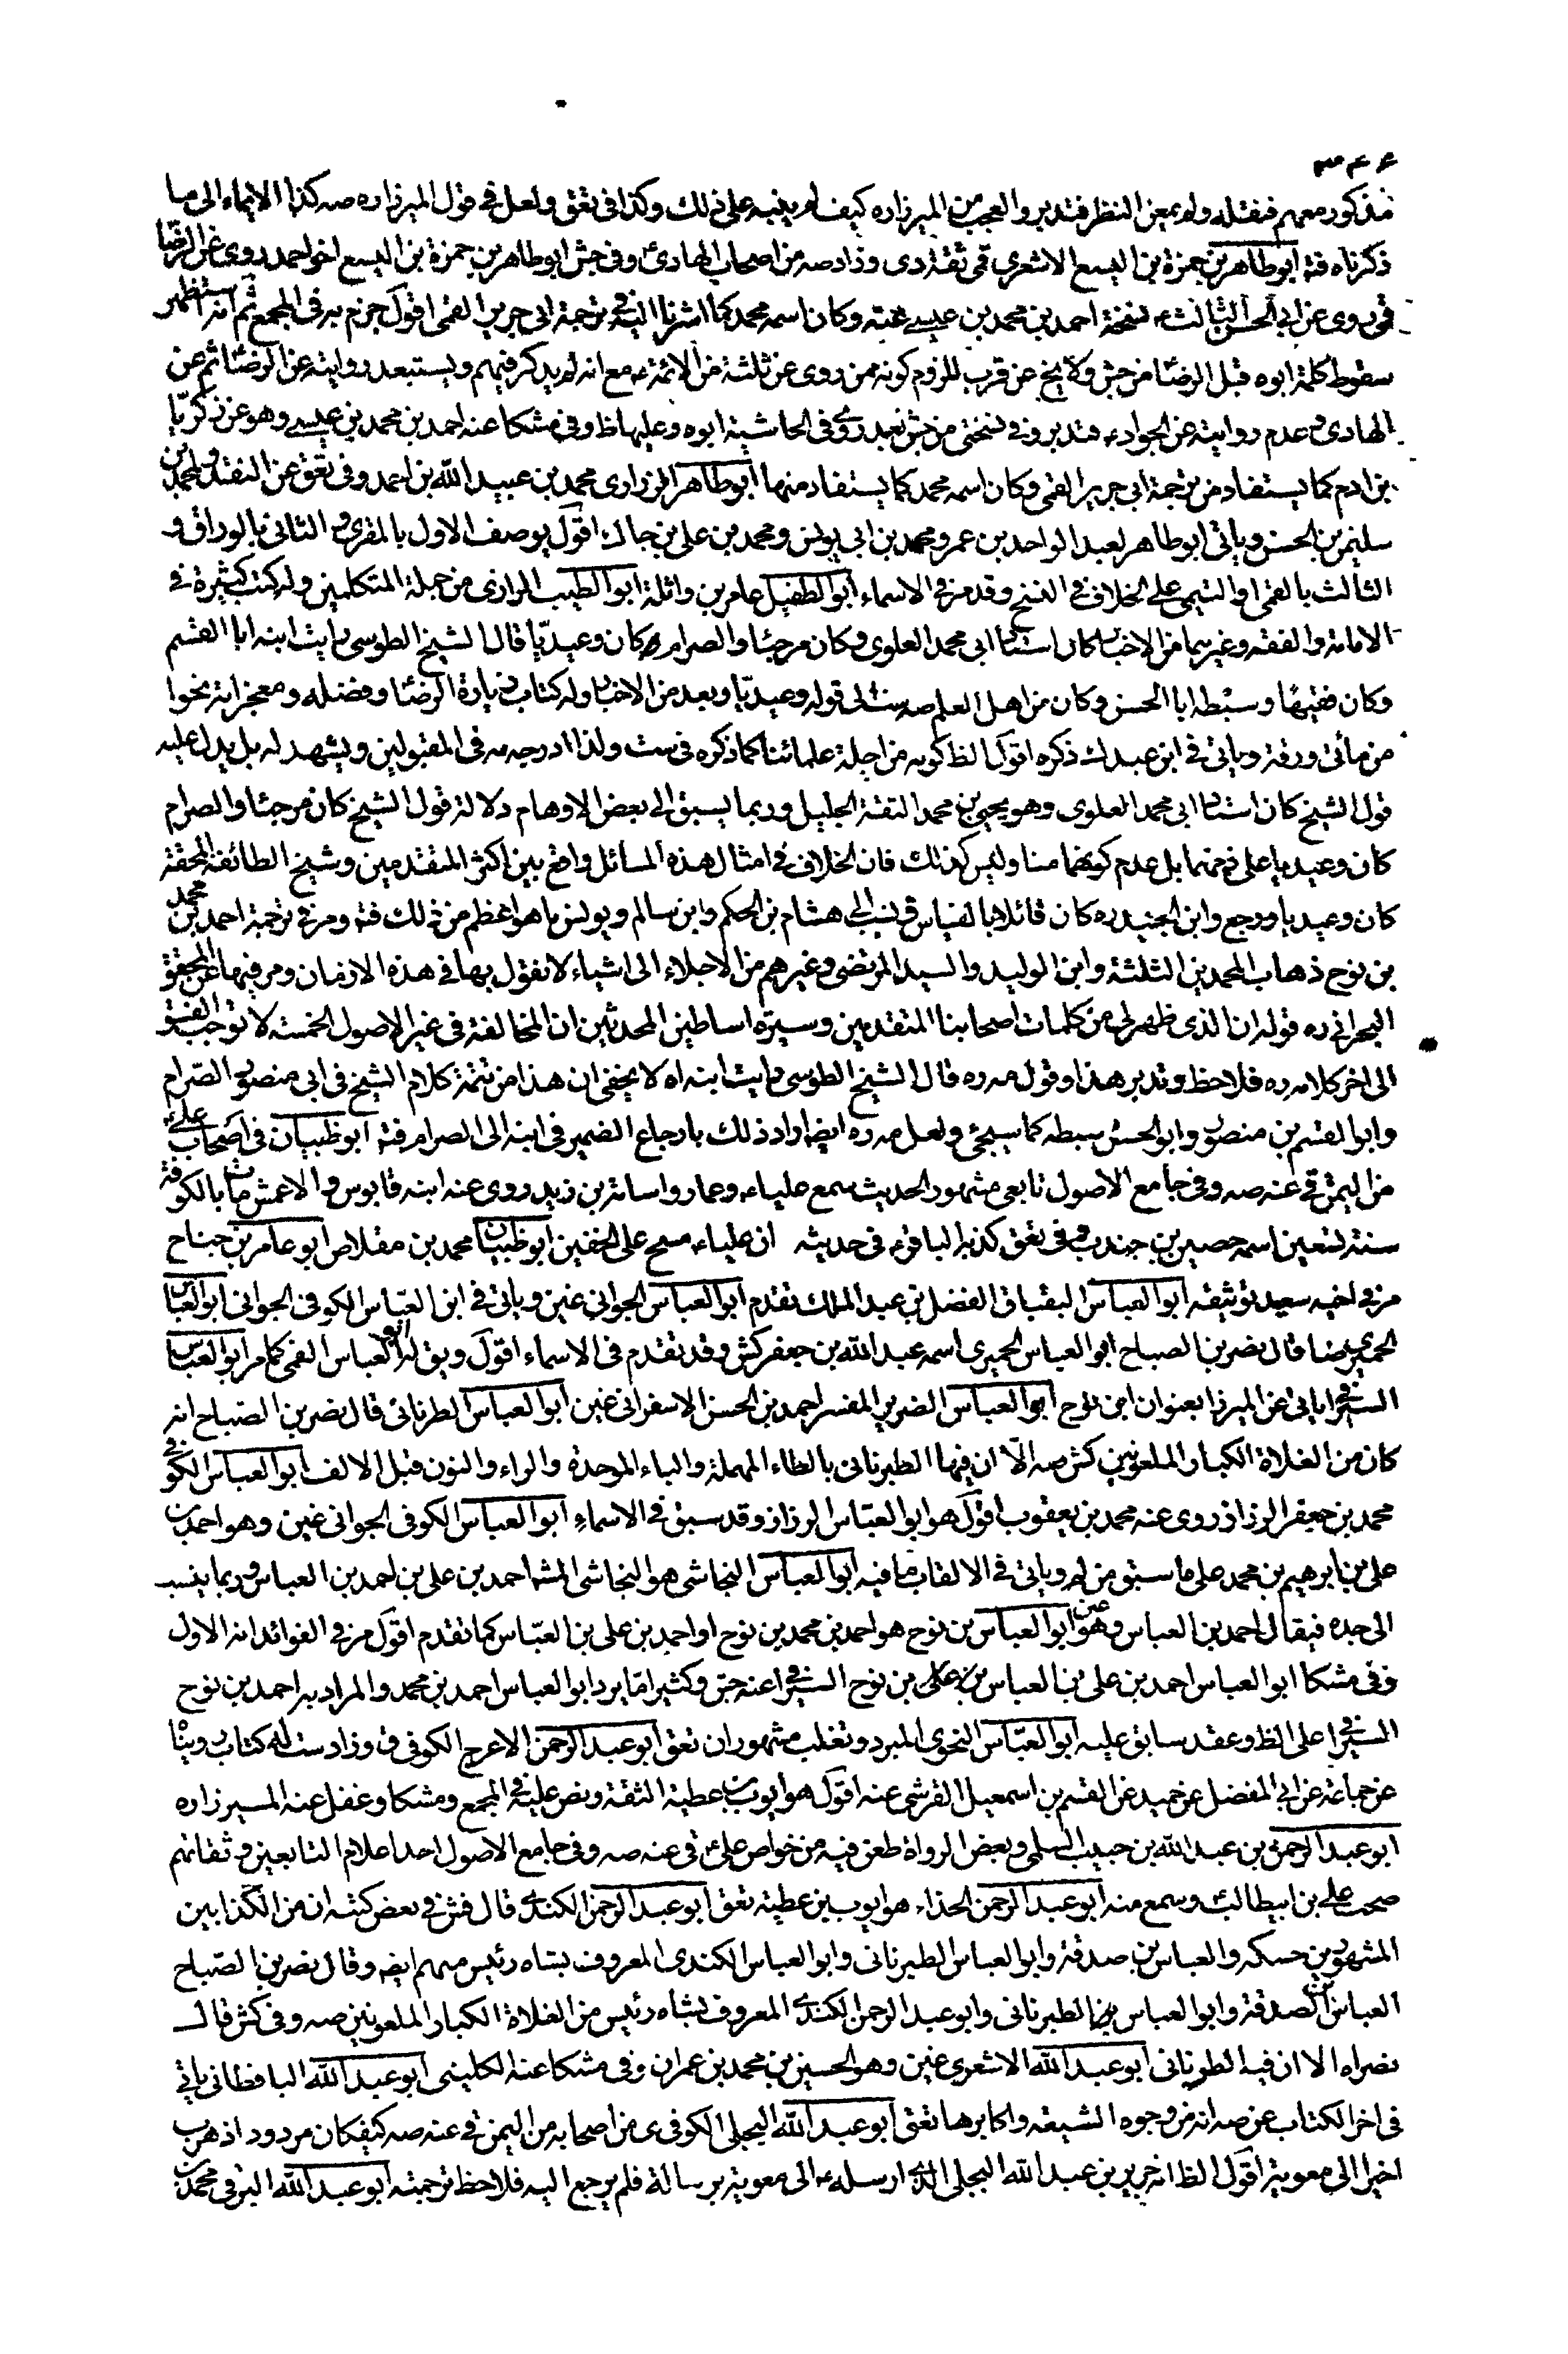 ٣٤٤
مذكور معهم فنقله ولم يمعن النظر فتدبر والعجب من الميرزا ره كيف لم ينبه على ذلك وكذا في تعق ولعل في قول الميرزا ره صه كذا الايماء الى ما
ذكرناه فتد ابو طاهر بن حمزة بن اليسع الاشعري قمي ثقة دى وزاد صه من اصحاب الهادى ع وفي جش ابو طاهر بن حمزة بن اليسع اخو احمد روى عن الرضا
قمي روى عن ابي الحسن الثالث ع نسخة احمد بن محمد بن عيسى عنه وكان اسمه محمد كما اشرنا اليه في ترجمة ابي جرير القمي اقول جزم به في المجمع ثم انه استظهر
سقوط كلمة ابوه قبل الرضا من جش ولا يخ عن قرب للزوم كونه ممن روى عن ثلثة من الائمة ع مع انه لم يذكر فيهم ويستبعد روايته عن الرضا ثم عن
الهادى ع وعدم روايته عن الجواد ع فتدبر وفي نسختي من جش بعد روى وفي الحاشية ابوه وعليها ظ وفي مشكا عنه احمد بن محمد بن عيسى وهو عن زكريا
بن ادم كما يستفاد من ترجمة ابي جرير القمي وكان اسمه محمد كما يستفاد منها ابو طاهر الزراري محمد بن عبيد الله بن احمد وفي تعق عن النقد ولمحمد بن
سليمن بن الحسن وياتي ابو طاهر لعبد الواحد بن عمر ومحمد بن ابي يونس ومحمد بن علي بن جاك اقول يوصف الاول بالمقرى و الثاني بالوراق و
الثالث بالقمي او التيمي على الخلاف في النسخ وقد مر في الاسماء ابو الطفيل عامر بن واثلة ابو الطيب الرازى من جملة المتكلمين وله كتب كثيرة في
الامامة والفقه وغيرهما من الاخبار كان استاد ابي محمد العلوى وكان مرجئا والصرام كان وعيديا قال الشيخ الطوسى رايت ابنه ابا القسم
وكان فقيها وسبطه ابا الحسن وكان من اهل العلم صه ست الى قوله وعيديا وبعد من الاخبار وله كتاب زيارة الرضا وفضله ومعجزاته نحوا
من مائتى ورقة وياتي في ابن عبدك ذكره اقول الظ كونه من اجلة علمائنا كما ذكره في ست ولذا ادرجه مه في المقبولين ويشهد له بل يدل عليه
قول الشيخ كان استاد ابي محمد العلوى وهو يحيى بن محمد الثقة الجليل وربما يسبق الى بعض الاوهام دلالة قول الشيخ كان مرجئا والصرام
كان وعيديا على ذمهما بل عدم كونهما منا وليس كذلك فان الخلاف في امثال هذه المسائل واقع بين اكثر المتقدمين وشيخ الطائفة المحقة
كان وعيديا ورجع وابن الجنيد ره كان قائلا بالقياس ونسب الى هشام بن الحكم وابن سالم ويونس ما هو اعظم من ذلك فتد ومر في ترجمة احمد بن محمد
بن نوح ذهاب المحمدين الثلثة وابن الوليد والسيد المرتضى وغيرهم من الاجلاء الى اشياء لا نقول بها في هذه الازمان ومر فيها عن المحقق
البحراني ره قوله ان الذى ظهر لي من كلمات اصحابنا المتقدمين وسيرة اساطين المحدثين ان المخالفة في غير الاصول الخمسة لا توجب الفسق
الى اخر كلامه ره فلاحظ وتدبر هذا وقول مه ره قال الشيخ الطوسى رايت ابنه اه لا يخفى ان هذا من تتمة كلام الشيخ في ابي منصور الصرام
وابو القسم بن منصور وابو الحسن سبطه كما سيجئ ولعل مه ره ايضا اراد ذلك بارجاع الضمير في ابنه الى الصرام فتد ابو ظبيان في اصحاب علي ع
من اليمن قي عنه صه وفي جامع الاصول تابعي مشهور الحديث سمع عليا ع وعمار واسامة بن زيد روى عنه ابنه قابوس والاعمش مات بالكوفة
سنة تسعين اسمه حصين بن جندب وفي تعق كذبه الباقر ع في حديثه ان عليا ع مسح على الخفين ابو ظبيان محمد بن مقلاص ابو عامر بن جناح
مر في اخيه سعيد توثيقه ابو العباس البقباق الفضل بن عبد الملك تقدم ابو العباس الجواني عنين وياتي في ابن العباس الكوفي الجواني ابو العباس
الحميرى ضا قال نصر بن الصباح ابو العباس الحميرى اسمه عبد الله بن جعفر كش وقد تقدم في الاسماء اقول ويق له ابو العباس القمي كما مر ابو العباس
السيرافي ياتي عن الميرزا بعنوان ابن نوح ابو العباس الضرير المفسر احمد بن الحسن الاسفرانى عنين ابو العباس الطرناني قال نصر بن الصباح انه
كان من الغلاة الكبار الملعونين كش صه الا ان فيها الطبرناني بالطاء المهملة والباء الموحدة والراء والنون قبل الالف ابو العباس الكوفي
محمد بن جعفر الرزاز روى عنه محمد بن يعقوب اقول هو ابو العباس الرزاز وقد سبق في الاسماء ابو العباس الكوفي الجواني عنين وهو احمد بن
علي بن ابرهيم بن محمد على ما سبق من لم وياتي في الالقاب ما فيه ابو العباس النجاشى هو النجاشى المشه احمد بن علي بن احمد بن العباس وربما ينسب
الى جده فيقال احمد بن العباس وهو عنين ابو العباس بن نوح هو احمد بن محمد بن نوح او احمد بن علي بن العباس كما تقدم اقول مر في الفوائد انه الاول
وفي مشكا ابو العباس احمد بن علي بن العباس بن علي بن نوح السيرافي عنه جش وكثيرا ما يرد ابو العباس احمد بن محمد والمراد به احمد بن نوح
السيرافي على الظ وعقد سابق عليه ابو العباس النحوى المبرد وثعلب مشهوران تعق ابو عبد الرحمن الاعرج الكوفي ق وزاد ست له كتاب رويناه
عن جماعة عن ابي المفضل عن حميد عن القسم بن اسمعيل القرشى عنه اقول هو ايوب بن عطية الثقة ونص عليه في المجمع ومشكا وغفل عنه الميرزا ره
ابو عبد الرحمن بن عبد الله بن حبيب السلمي وبعض الرواة طعن فيه من خواص علي ع قي عنه صه وفي جامع الاصول احد اعلام التابعين وثقاتهم
صحب علي بن ابيطالب ع وسمع منه ابو عبد الرحمن الحذاء هو ايوب بن عطية تعق ابو عبد الرحمن الكندى قال فش في بعض كتبه ان من الكذابين
المشهورين حسكه والعباس بن صدقة وابو العباس الطبرناني وابو العباس الكندى المعروف بشاه رئيس منهم ايضه وقال نصر بن الصباح
العباس بن صدقة وابو العباس الطبرناني وابو عبد الرحمن الكندى المعروف بشاه رئيس من الغلاة الكبار الملعونين صه وفي كش قال
نصر اه الا ان فيه الطرناني ابو عبد الله الاشعرى عنين وهو الحسين بن محمد بن عمران وفي مشكا عنه الكليني ابو عبد الله الباقطاني ياتي
في اخر الكتاب عن صه انه من وجوه الشيعة واكابرها تعق ابو عبد الله البجلى الكوفي ى من اصحابه من اليمن قي عنه صه كيف كان مردود اذ هرب
اخيرا الى معوية اقول الظ انه جرير بن عبد الله البجلى الذى ارسله ع الى معوية برسالة فلم يرجع اليه فلاحظ ترجمته ابو عبد الله البرقي محمد بن